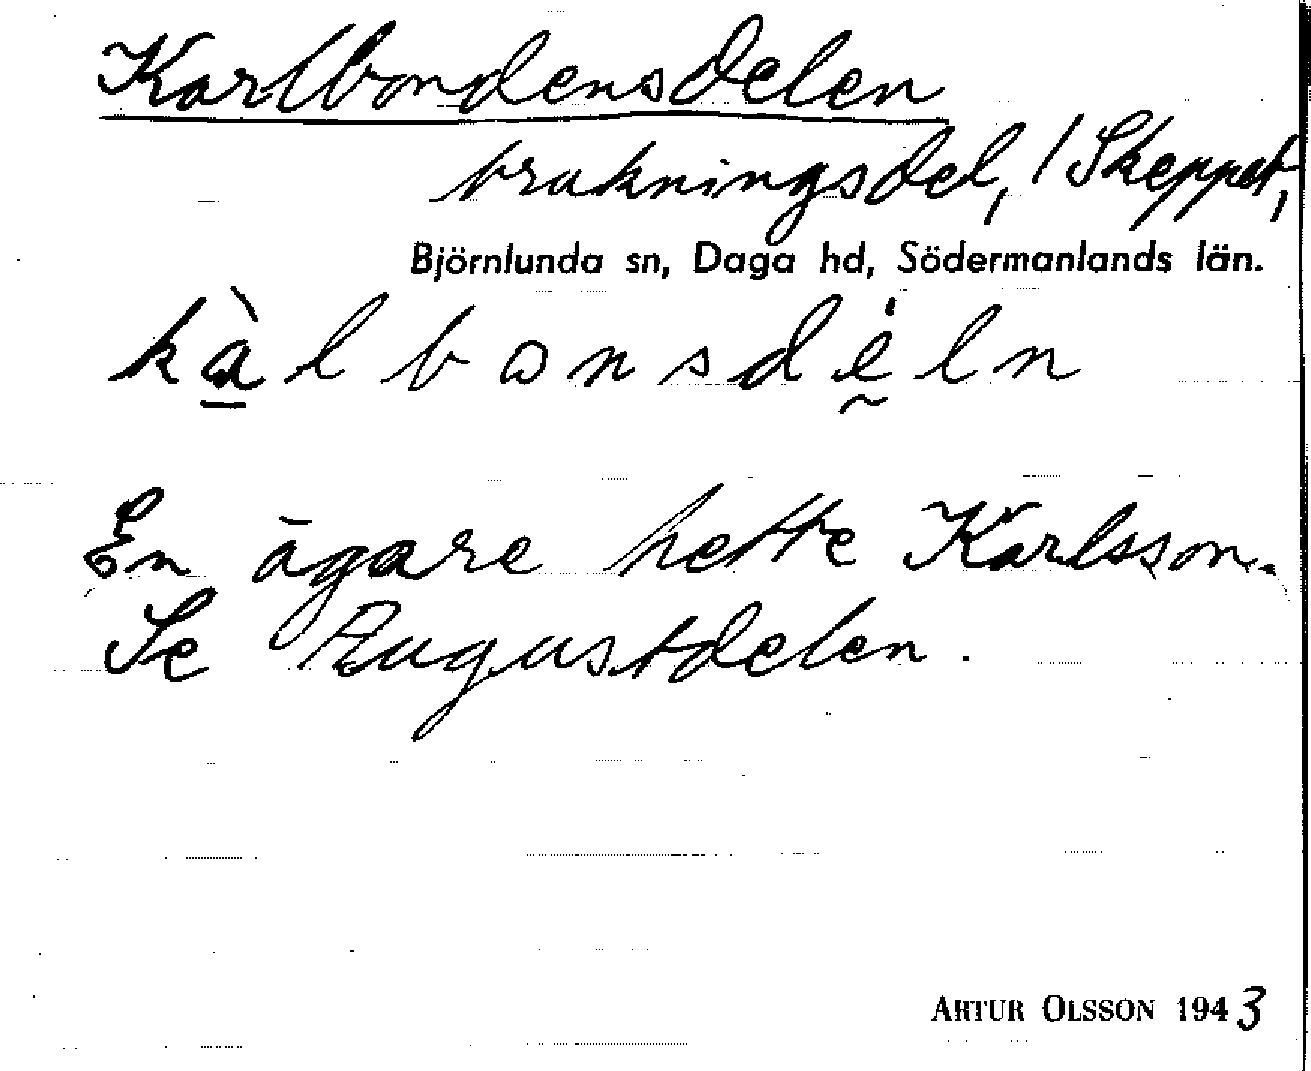 Karlbondensdelen
brukningsdel, / Skeppet,
Björnlunda sn, Daga hd, Södermanlands län.
kàl bonsdéln
En ägare hette Karlsson.
Se Augustdelen.
ARTUR OLSSON 1943